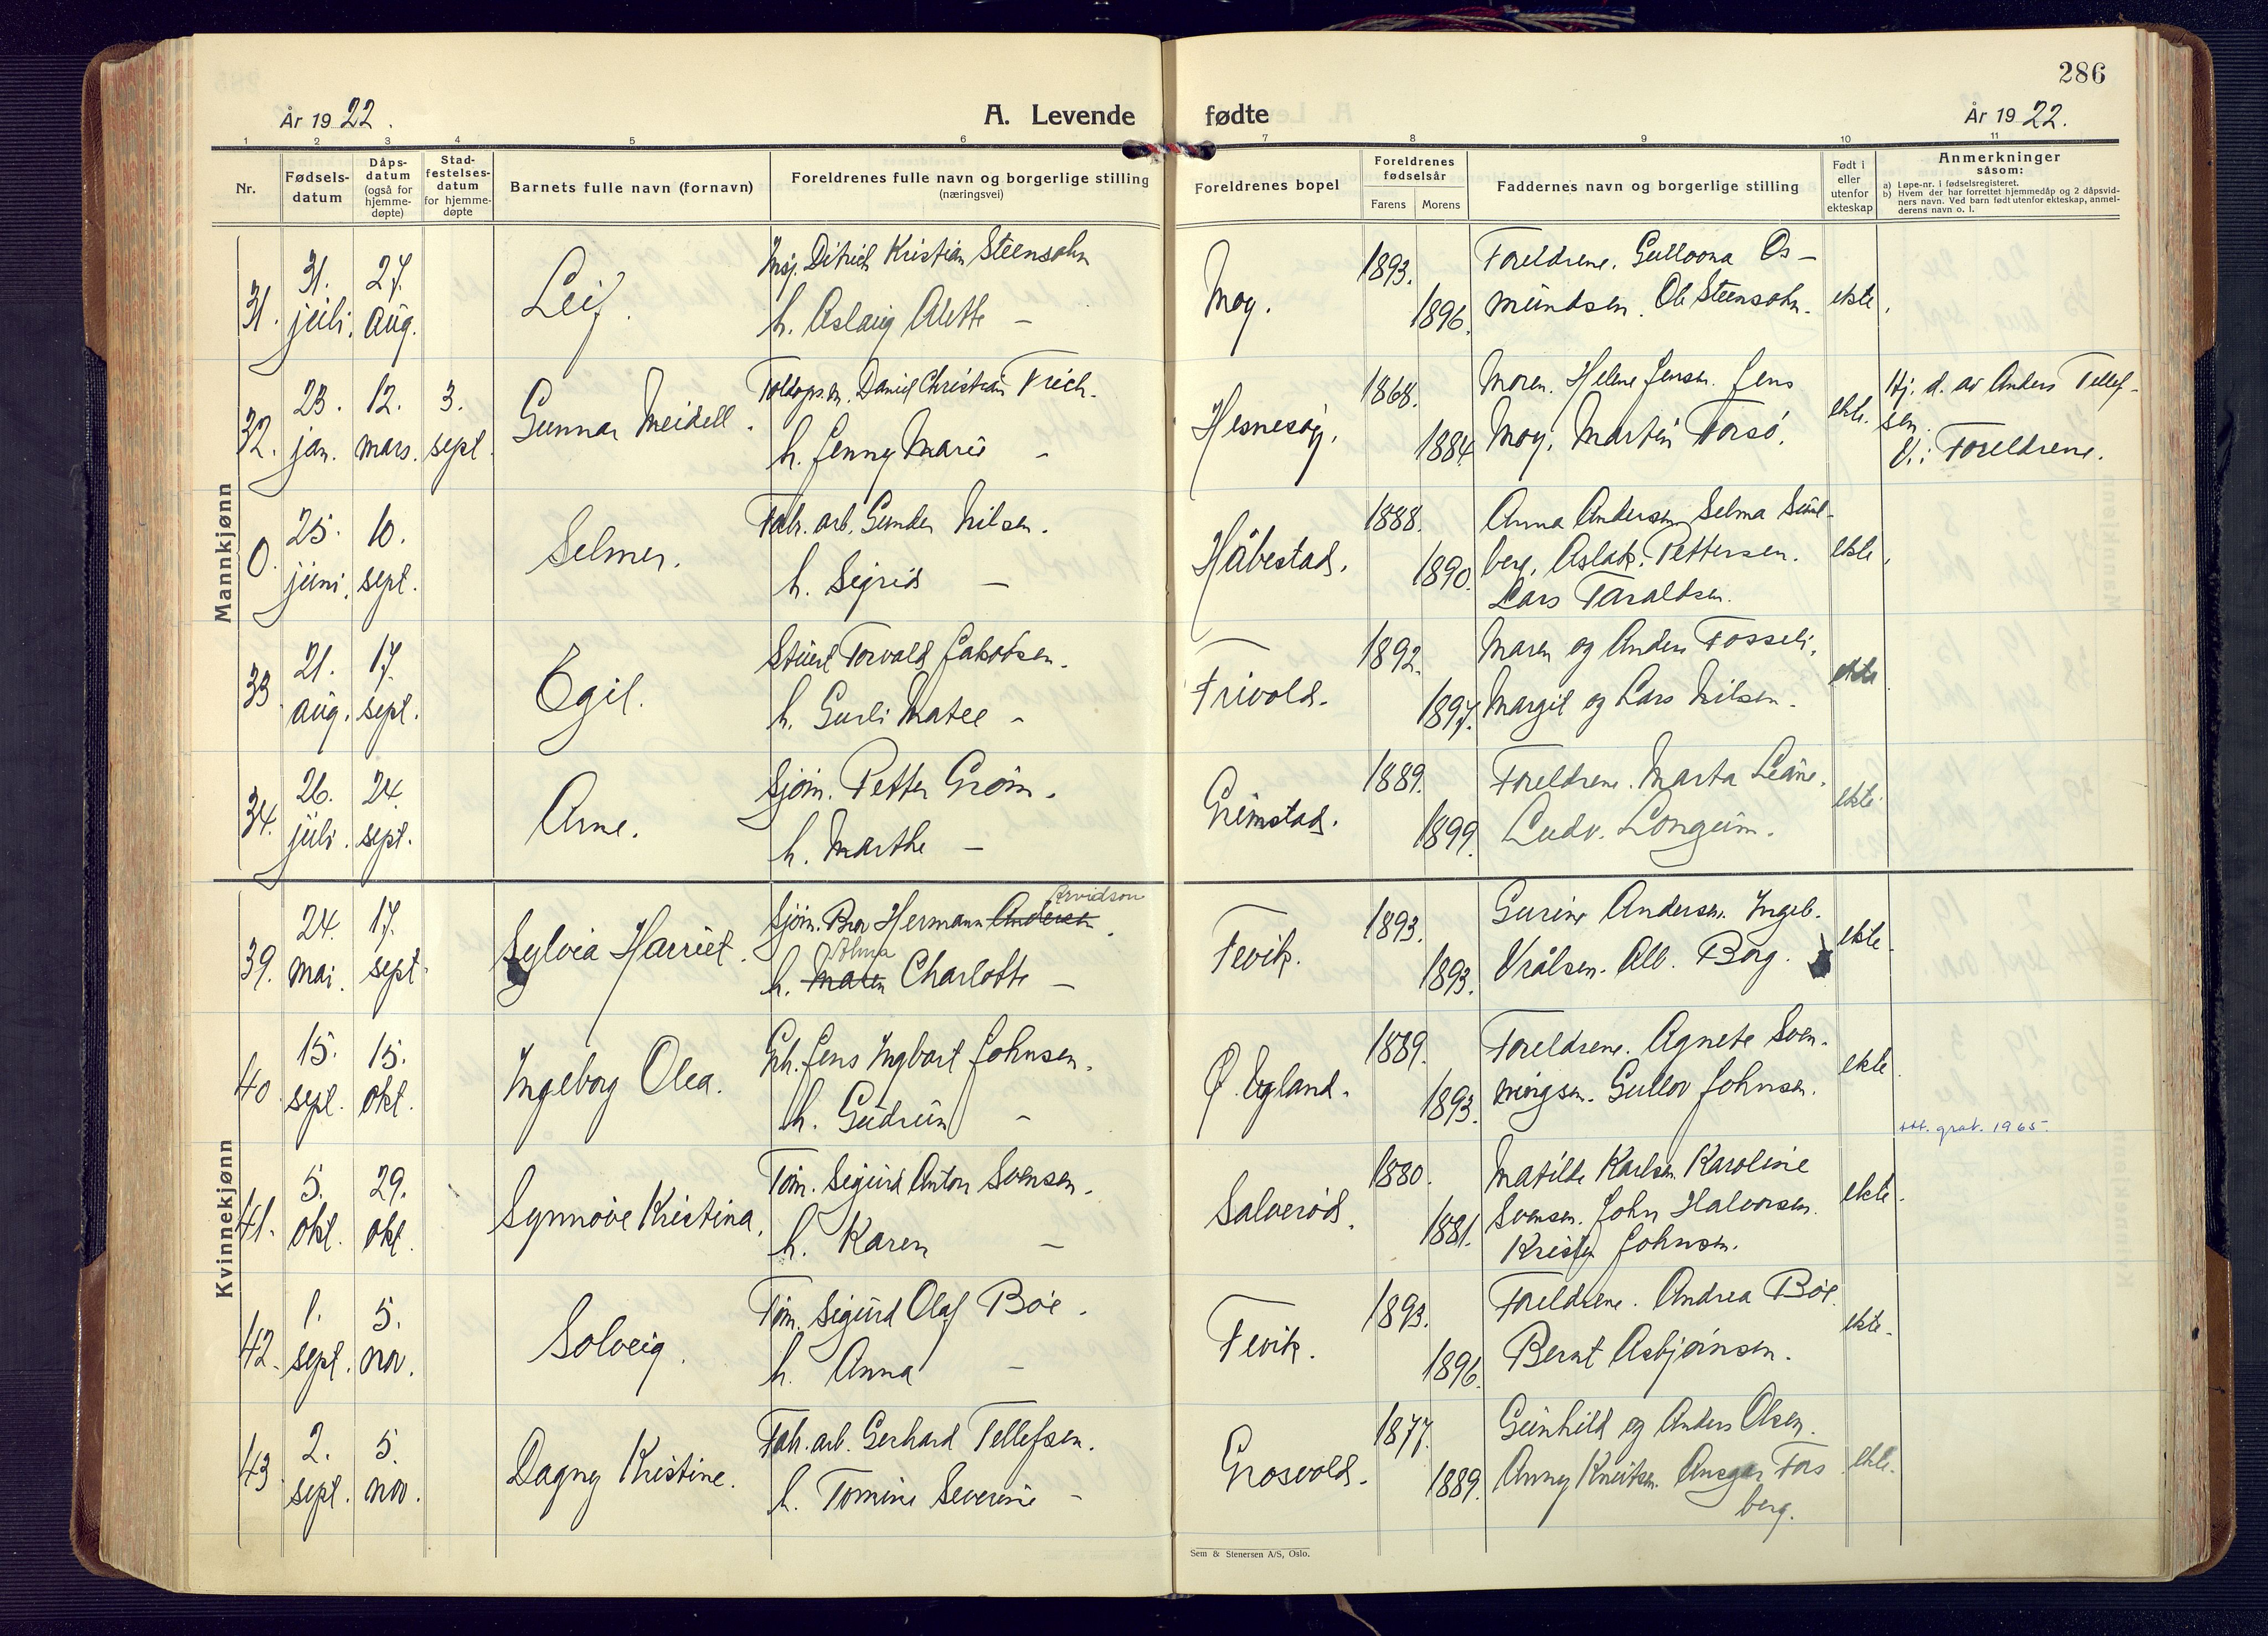 286
År 1922.
A. Levende fødte
År 1922.
1 2 3 4 5 6 7 8 9 10 11
Nr.
Fødsels-
datum
Dåps-
datum
(også for
hjemme-
døpte)
Stad-
festelses-
datum
for hjemme-
døpte
Barnets fulle navn (fornavn)
Foreldrenes fulle navn og borgerlige stilling
(næringsvei)
Foreldrenes bopel
Foreldrenes
fødselsår
Farens Morens
Faddernes navn og borgerlige stilling
Født i
eller
utenfor
ekteskap
Anmerkninger
såsom:
a) Løpe-nr. i fødselsregisteret.
b) Hvem der har forrettet hjemmedåp og 2 dåpsvid-
ners navn. Ved barn født utenfor ekteskap, anmel-
derens navn o. l.
Mannkjønn
31. 31. juli. 27. aug. Leif.
Ditrich Kristian Steensohn
h. Aslaug Alette —
Moy. 1893. 1896.
Foreldrene. Gulloona Os-
mundsen. Ole Steensohn. ekte.
32. 23. jan. 12. mars. 3. sept. Gunnar Meidell.
Toldops.m. Daniel Christian Frich.
h. Jenny Marie —
Hesnesøy. 1868. 1884.
Moren. Helene Jensen. Jens
Moy. Martin Torsö. ekte.
Hj. d. av Anders Tellef-
sen.
V.: Foreldrene.
0. 25. juni. 10. sept. Selmer.
Fabr. arb. Gunder Nilsen.
h. Sigrid —
Håbestad. 1888. 1890.
Anna Andersen, Selma Sund-
berg, Aslak Pettersen.
Lars Taraldsen. ekte.
33. 21. aug. 17. sept. Egil.
Stuert Torvald Jakobsen.
h. Gurli Matee —
Frivold. 1892. 1897.
Maren og Anders Fosseli.
Margit og Lars Nilsen. ekte
34. 26. juli. 24. sept. Arne.
Sjøm. Petter Grøm.
h. Marthe —
Grimstad. 1889. 1899.
Foreldrene. Marta Leane.
Ludv. Longum. ekte.
Kvinnekjønn
39. 24. mai. 17. sept. Sylvia Harriet.
Arvidson
Sjøm. Bror Hermann Andersen.
Alma
h. Maren Charlotte —
Fevik. 1893. 1893.
Gurine Andersen. Ingeb.
Vrålsen. Alb. Borg. ekte.
40. 15. sept. 15. okt. Ingeborg Olea.
Gbr. Jens Ingbart Johnsen.
h. Gudrun —
Ø. Egland. 1889. 1893.
Foreldrene. Agnete Sven-
ningsen. Gullov Johnsen. ekte.
att. grat. 1965.
41. 5. okt. 29. okt. Synnøve Kristina.
Tøm. Sigurd Anton Svensen.
h. Karen —
Salverød. 1880. 1881.
Matilde Karlsen. Karoline
Svensen. John Halvorsen.
Kristen Johnsen. ekte.
42. 1. sept. 5. nov. Solveig.
Tøm. Sigurd Olaf Bøe.
h. Anna —
Fevik. 1893. 1896.
Foreldrene. Andrea Bøe.
Bernt Asbjørnsen. ekte.
43. 2. sept. 5. nov. Dagny Kristine.
Fabr. arb. Gerhard Tellefsen.
h. Tomine Severine —
Grosvold. 1877. 1889.
Gunhild og Anders Olsen.
Anny Knutsen. Ansgar Fos
berg. ekte.
Sem & Stenersen A/S, Oslo.